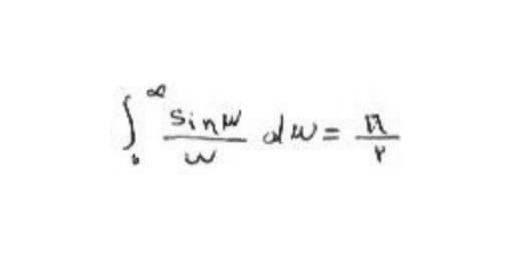 ∫₀^∞ sin w / w dw = π / ۲